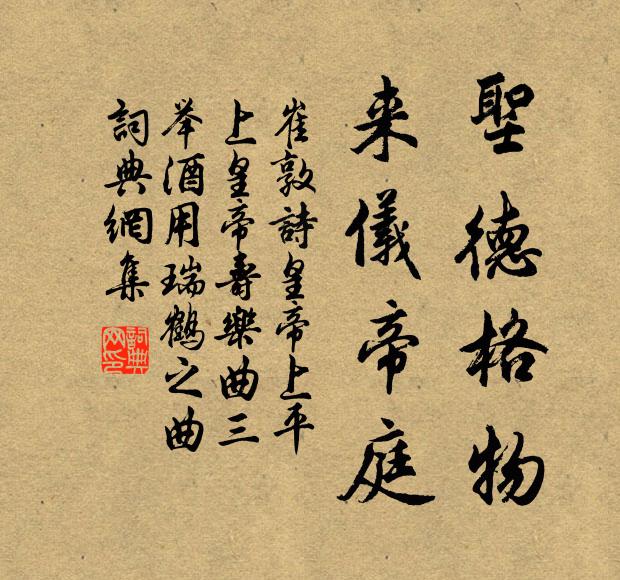 聖德格物
来儀帝庭
崔敦詩皇帝上平
上皇帝壽樂曲三
举酒用瑞鶴之曲
詞典網集
詞典网印